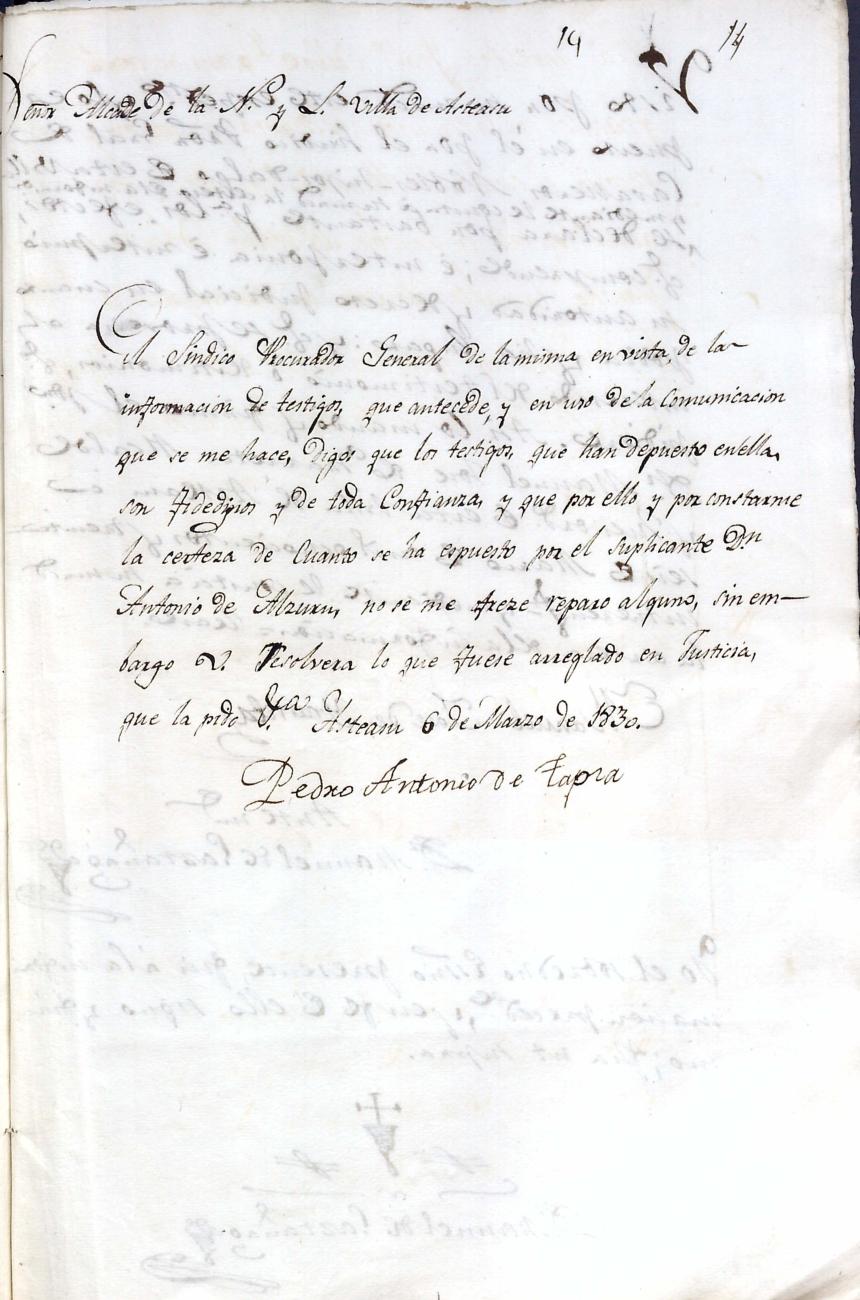 14 14
Señor Alcalde de la N. y L. Villa de Asteasu
El Sindico Procurador General de la misma en vista, de la
informacion de testigos, que antecede, y en uso de la Comunicacion
que se me hace, digo: que los testigos, que han depuesto en ella,
son fidedignos y de toda Confianza, y que por ello y por constarme
la certeza de Cuanto se ha espuesto por el suplicante Dn
Antonio de Alzuru, no se me ofreze reparo alguno, sin em-
bargo V. Resolvera lo que fuese arreglado en Justicia,
que la pido &.a Asteasu 6 de Marzo de 1830.
Pedro Antonio de Tapia